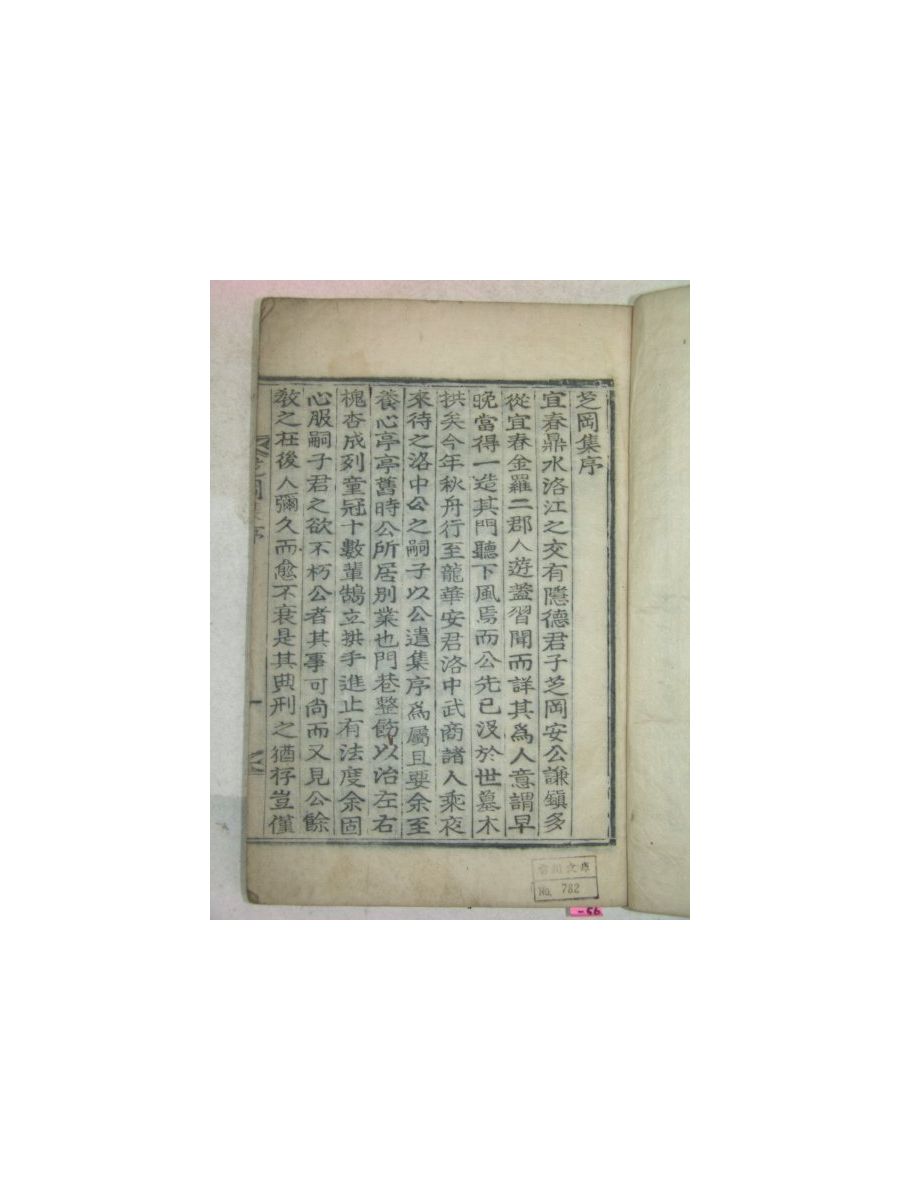 芝岡集序
宜春鼎水洛江之交有隱德君子芝岡安公謙鎭多
從宜春金羅二郡人遊蓋習聞而詳其爲人意謂早
晩當得一造其門聽下風焉而公先已沒於世墓木
拱矣今年秋舟行至龍華安君洛中武商諸人乘夜
來待之洛中公之嗣子以公遺集序爲屬且要余至
養心亭亭舊時公所居別業也門巷整飭以治左右
槐杏成列童冠十數輩鵠立拱手進止有法度余固
心服嗣子君之欲不朽公者其事可尚而又見公餘
敎之在後人彌久而愈不衰是其典刑之猶存豈僅
芝岡集序
一
文庫
No. 782
-56